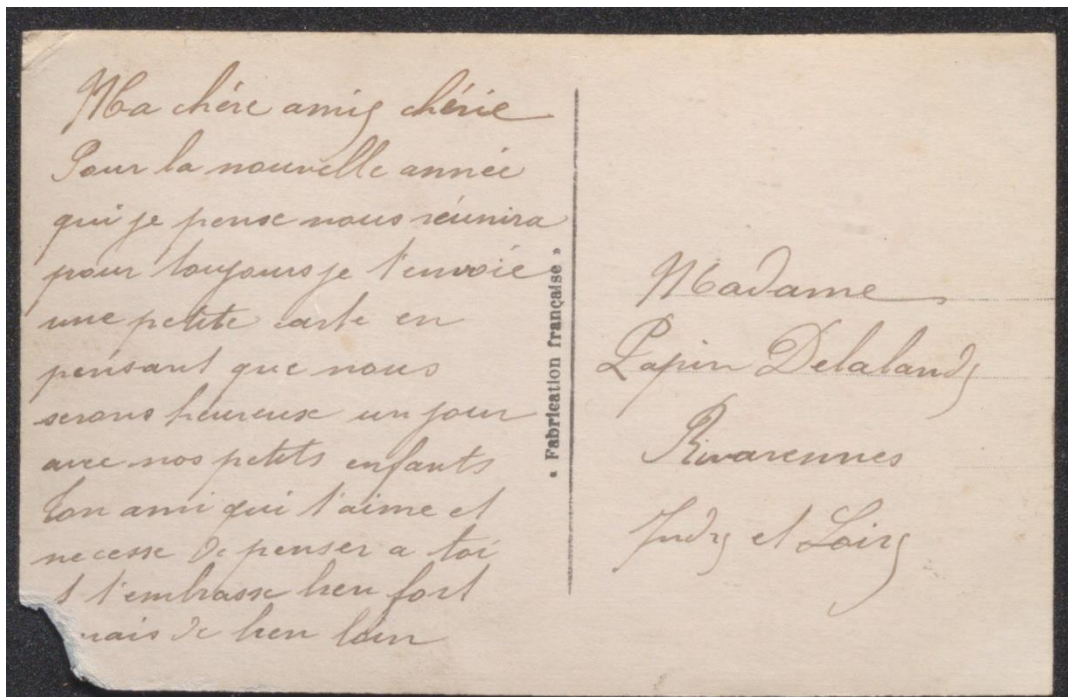 Ma chère amie chérie
Pour la nouvelle année
qui je pense nous réunira
pour toujours je t'envoie
une petite carte en
pensant que nous
serons heureux un jour
avec nos petits enfants
Ton ami qui t'aime et
necesse de penser a toi
t t'embrasse bien fort
mais de bien loin
« Fabrication française »
Madame
Papin Delalande
Rivarennes
Indre et Loire